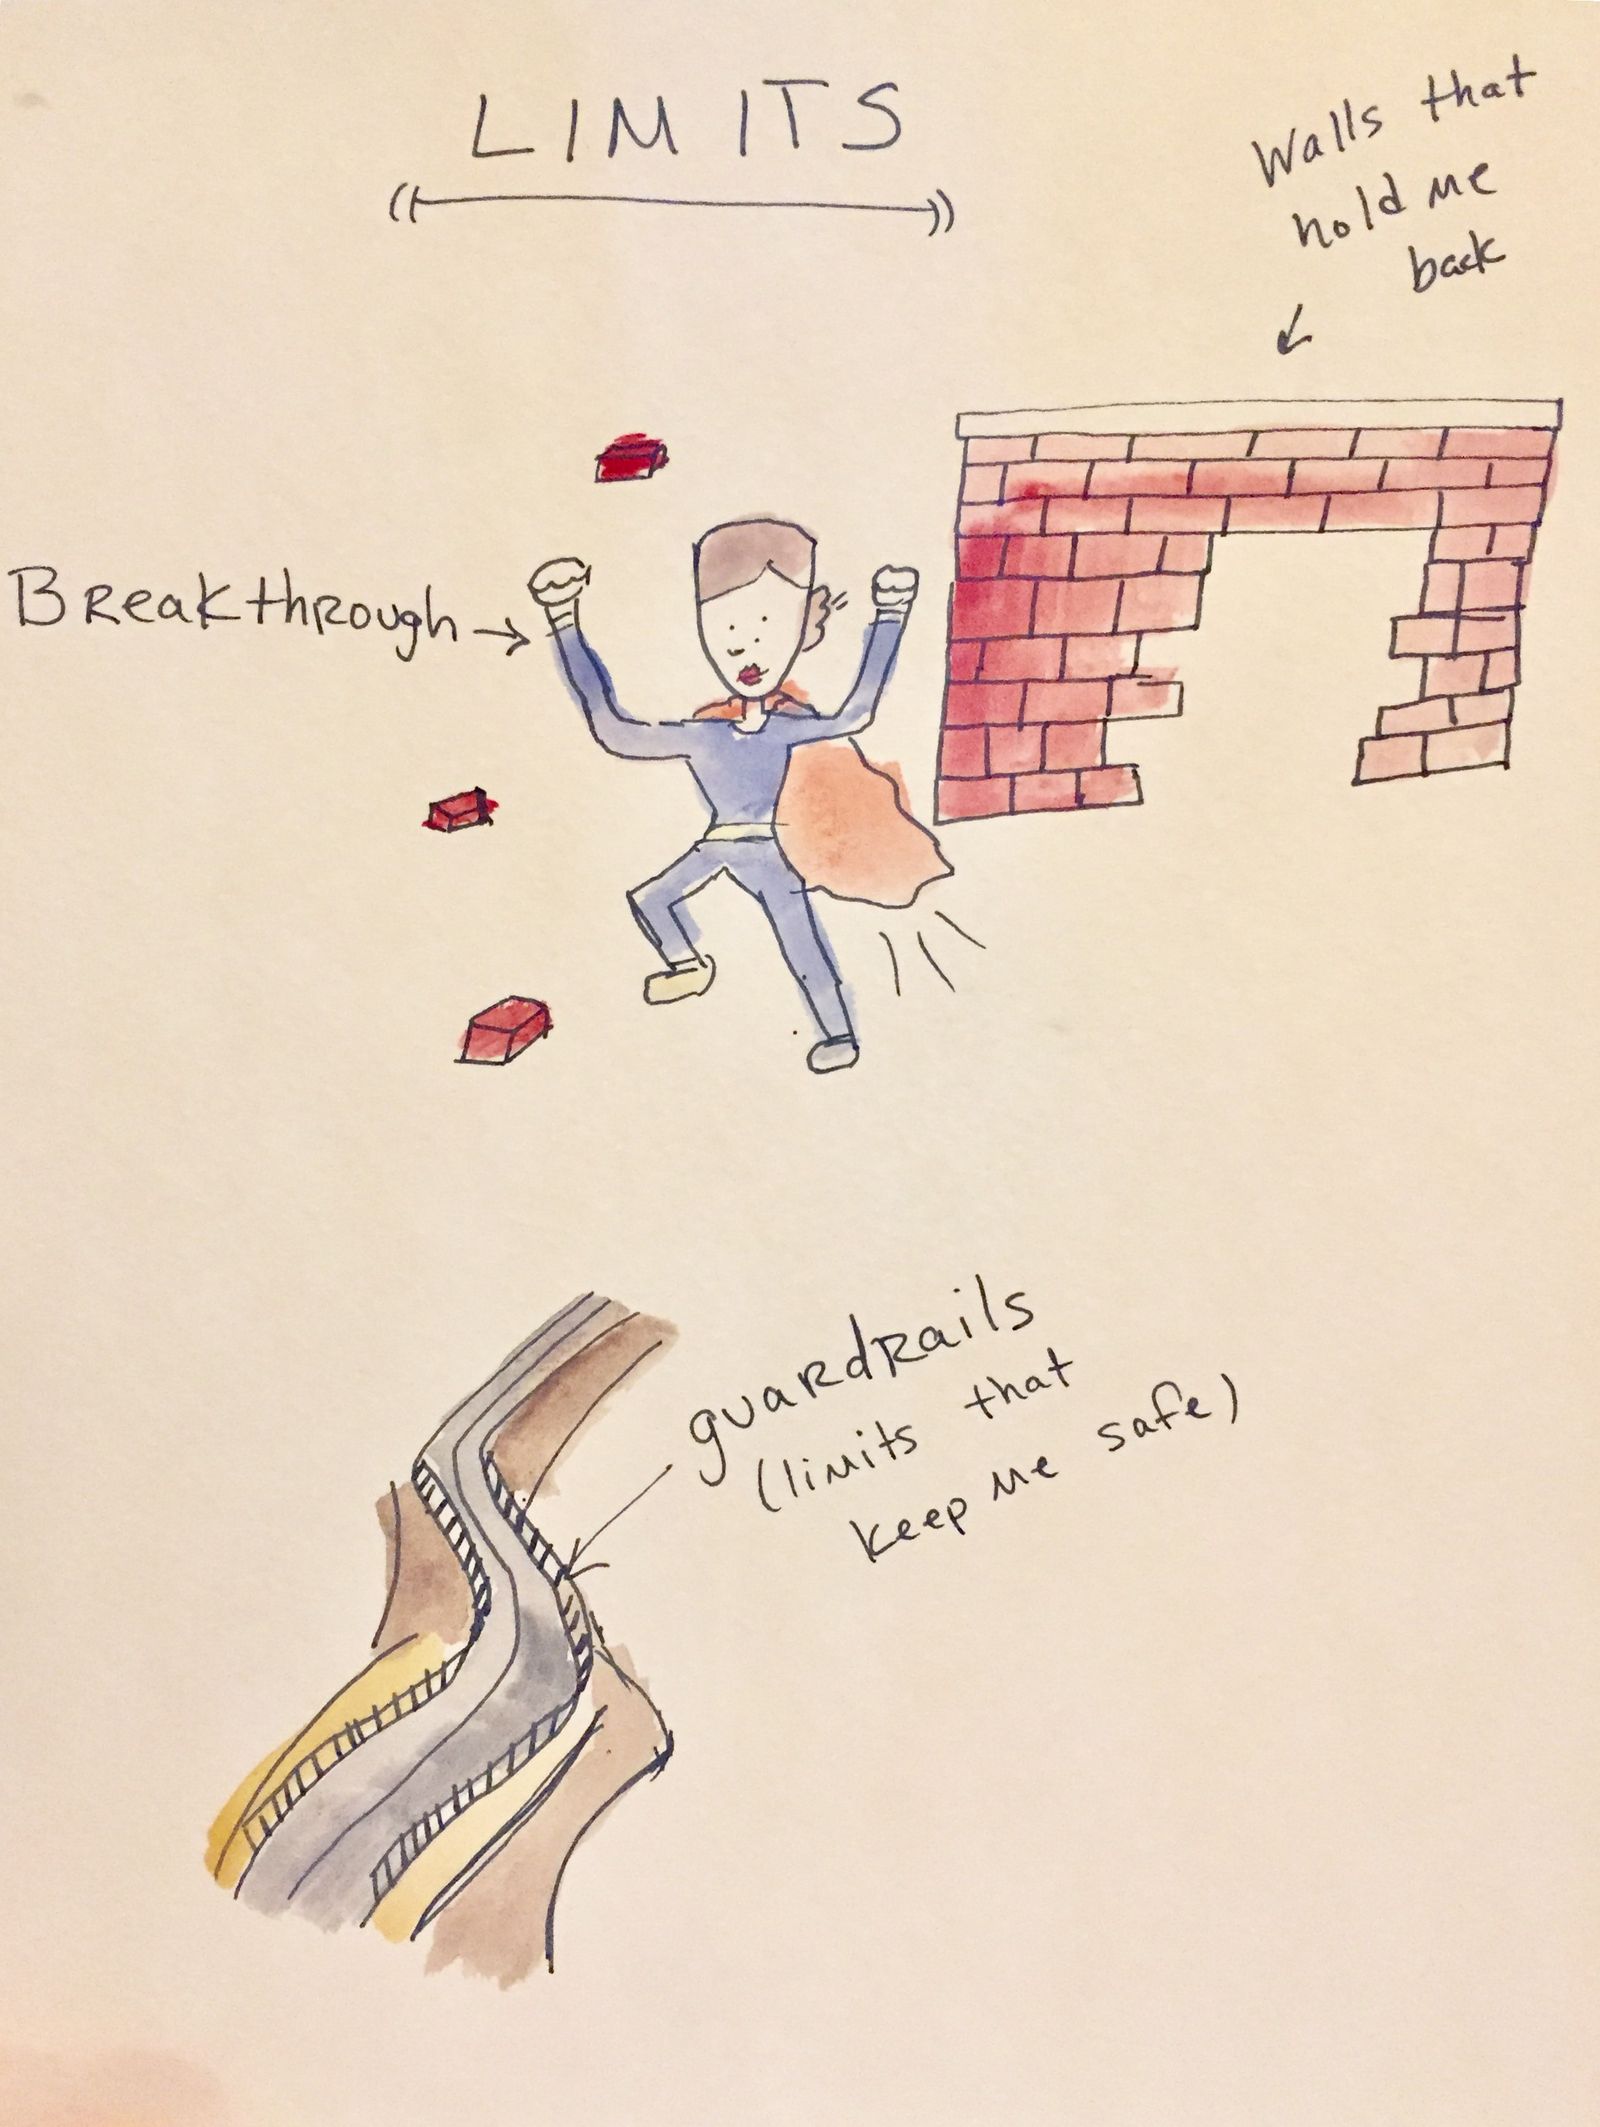 LIMITS
Walls that
hold me
back
Breakthrough
guardrails
(limits that
keep me safe)